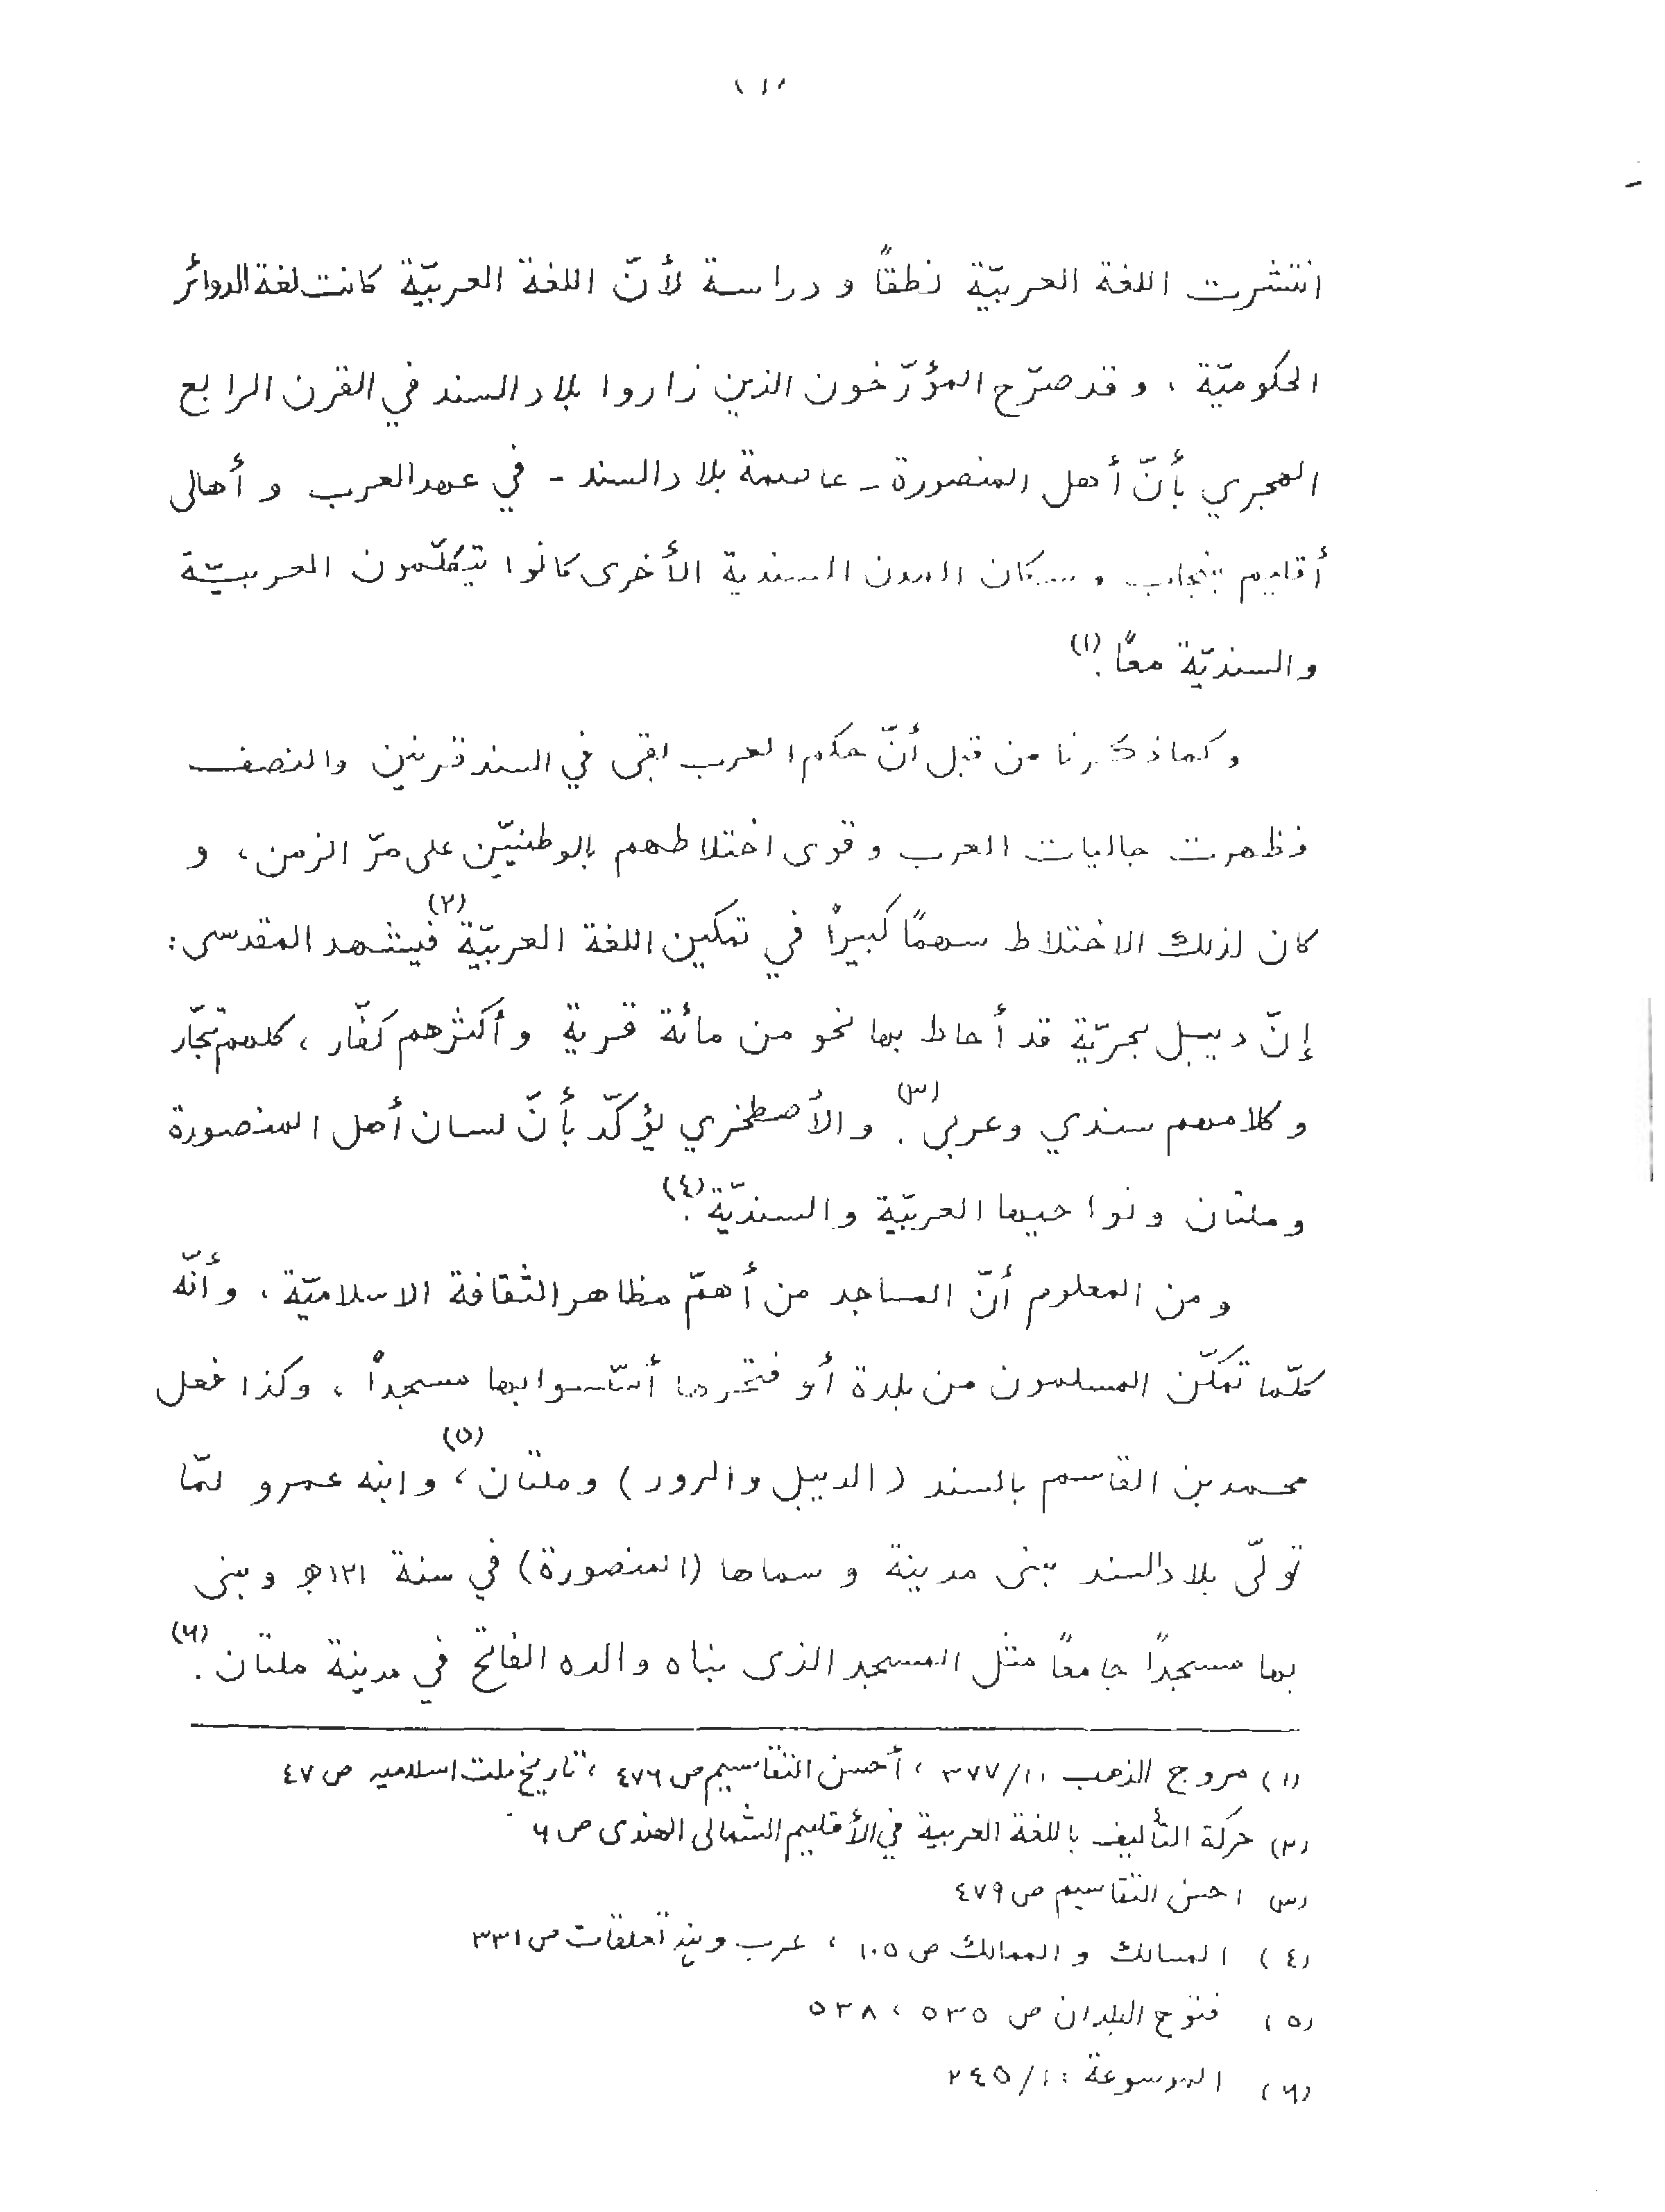 انتشرت اللغة العربيّة نطقاً و دراسة لأنّ اللغة العربيّة كانت لغة الدوائر
الحكوميّة ، و قد صرّح المؤرّخون الذين زاروا بلاد السند في القرن الرابع
الهجري بأنّ أهل المنصورة - عاصمة بلاد السند - في عهد العرب و أهالى
أقليم بنجاب و سكان المدن السندية الأخرى كانوا يتكلّمون العربيّة
والسنديّة معاً . (١)
وكما ذكرنا من قبل أنّ حكم العرب بقى في السند قرنين والنصف
فظهرت جاليات العرب و قوى اختلاطهم بالوطنيّين على مرّ الزمن ، و
كان لذلك الاختلاط سهمًا كبيراً في تمكين اللغة العربيّة (٢) فيشهد المقدسى :
إنّ ديبل بحريّة قد أحاط بها نحو من مائة قرية و أكثرهم كفّار ، كلهم تجّار
و كلامهم سندي وعربى . (٣) والأصطخري يؤكّد بأنّ لسان أهل المنصورة
و ملتان ونواحيها العربيّة والسنديّة . (٤)
ومن المعلوم أنّ المساجد من أهمّ مظاهر الثقافة الاسلاميّة ، و أنّه
كلّما تمكّن المسلمون من بلدة أو فتحوها أسّسوا بها مسجداً ، وكذا فعل
محمد بن القاسم بالسند ( الديبل والرور ) وملتان (٥) ، وابنه عمرو لمّا
تولّى بلاد السند بنى مدينة و سماها (المنصورة) في سنة ١٢١ھ و بنى
بها مسجدًا جامعًا مثل المسجد الذى بناه والده الفاتح في مدينة ملتان . (٦)
(١) مروج الذهب ٣٧٧/١ ، أحسن التقاسيم ص ٤٧٦ ، تاريخ ملت اسلاميه ص ٤٧
(٢) حركة التأليف باللغة العربية في الأقليم الشمالى الهندى ص ٦
(٣) احسن التقاسيم ص ٤٧٩
(٤) المسالك و الممالك ص ١٠٥ ، عرب و ہند تعلقات ص ٣٣١
(٥) فتوح البلدان ص ٥٣٥ ، ٥٣٨
(٦) الموسوعة : ٢٤٥/١